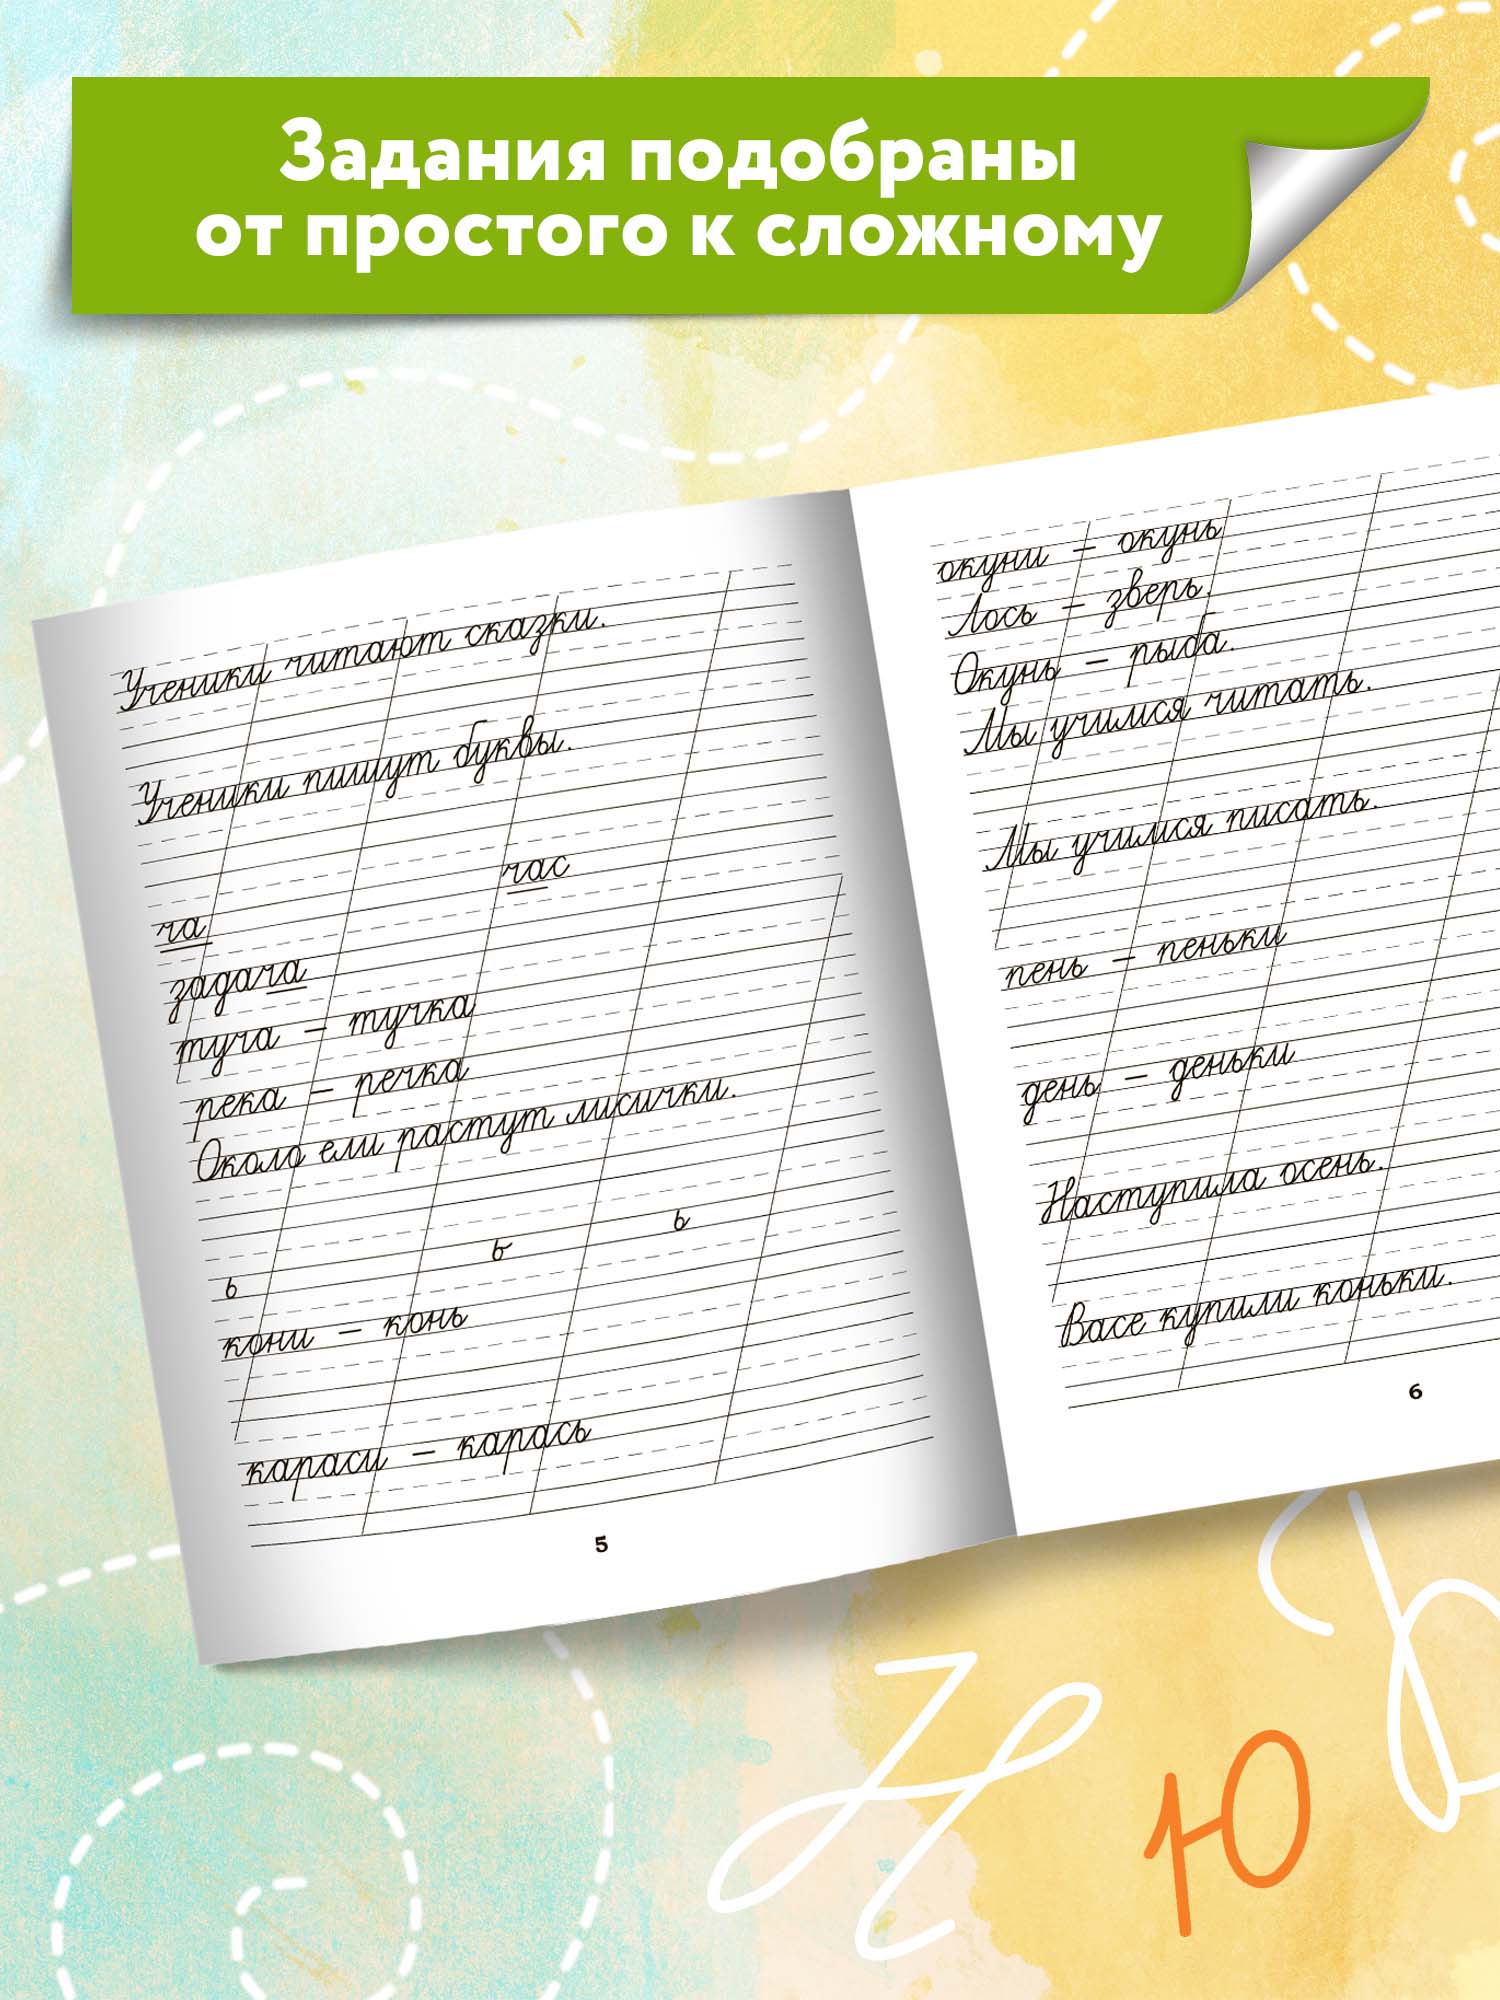 Задания подобраны
от простого к сложному
Ученики читают сказки.
Ученики пишут буквы.
ча час
задача
туча – тучка
река – речка
Около ели растут лисички.
ь ь ь
кони – конь
караси – карась
5
окуни – окунь
Лось – зверь.
Окунь – рыба.
Мы учимся читать.
Мы учимся писать.
пень – пеньки
день – деньки
Наступила осень.
Васе купили коньки.
6
Н Ю